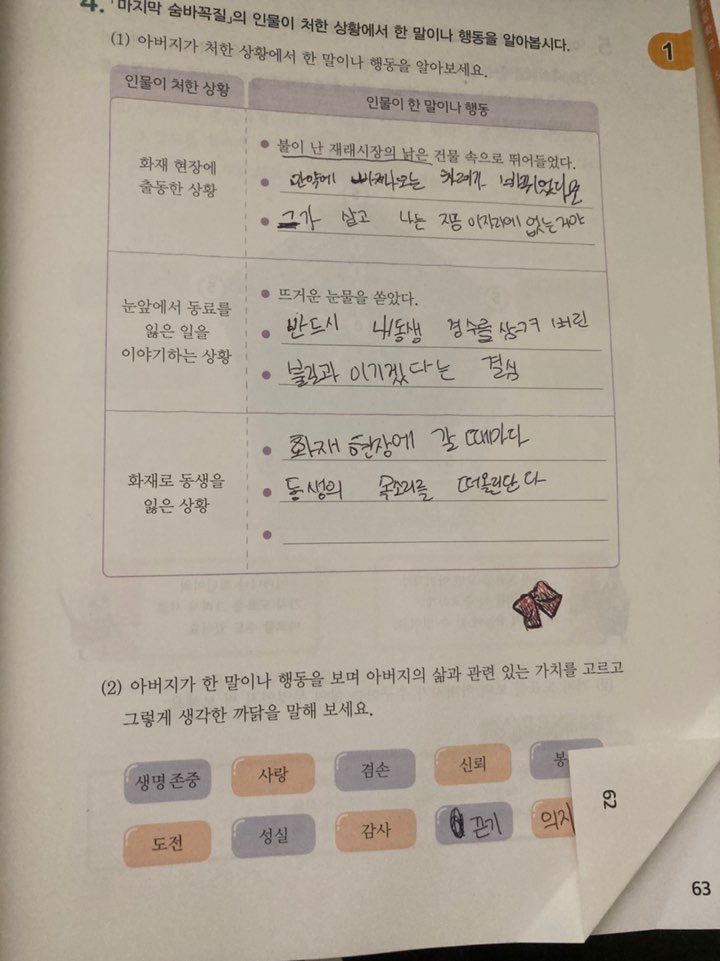 4. 「마지막 숨바꼭질」의 인물이 처한 상황에서 한 말이나 행동을 알아봅시다.
1
(1) 아버지가 처한 상황에서 한 말이나 행동을 알아보세요.
인물이 처한 상황
인물이 한 말이나 행동
화재 현장에
출동한 상황
불이 난 재래시장의 낡은 건물 속으로 뛰어들었다.
만약에 빠져나오는 차례가 바뀌었다면
그가 살고 나는 지금 이자리에 없는거야
눈앞에서 동료를
잃은 일을
이야기하는 상황
뜨거운 눈물을 쏟았다.
반드시 내동생 경수를 버린
불길과 이기겠다는 결심
화재로 동생을
잃은 상황
화재 현장에 갈 때마다
동생의 목소리를 떠올린단다
(2) 아버지가 한 말이나 행동을 보며 아버지의 삶과 관련 있는 가치를 고르고
그렇게 생각한 까닭을 말해 보세요.
생명 존중 사랑 겸손 신뢰 봉
도전 성실 감사 끈기 의지
62
63